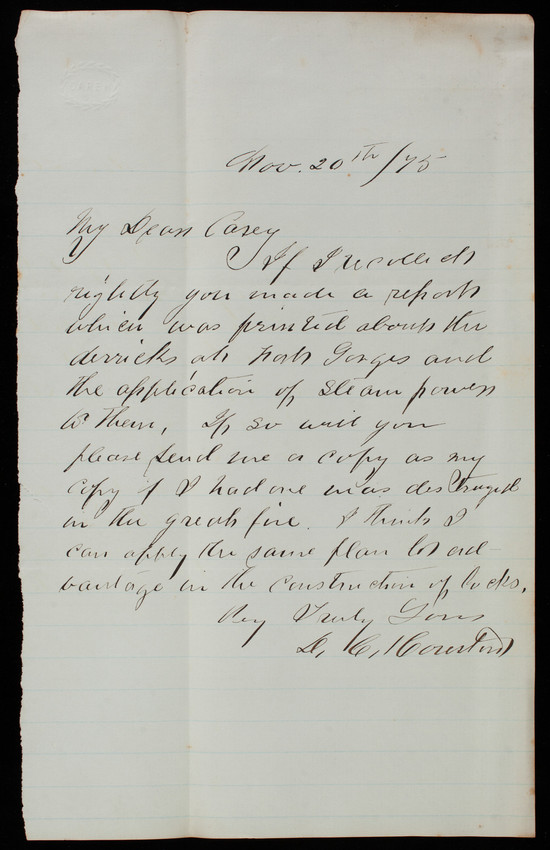 Nov. 20th /75
My Dear Casey
If I recollect
rightly you made a report
which was printed about the
derricks at Fort Gorges and
the application of steam power
to them, If so will you
please send me a copy as my
copy if I had one was destroyed
in the great fire. I think I
can apply the same plan to ad-
vantage in the construction of locks.
Very Truly Yours
D. C. Houston